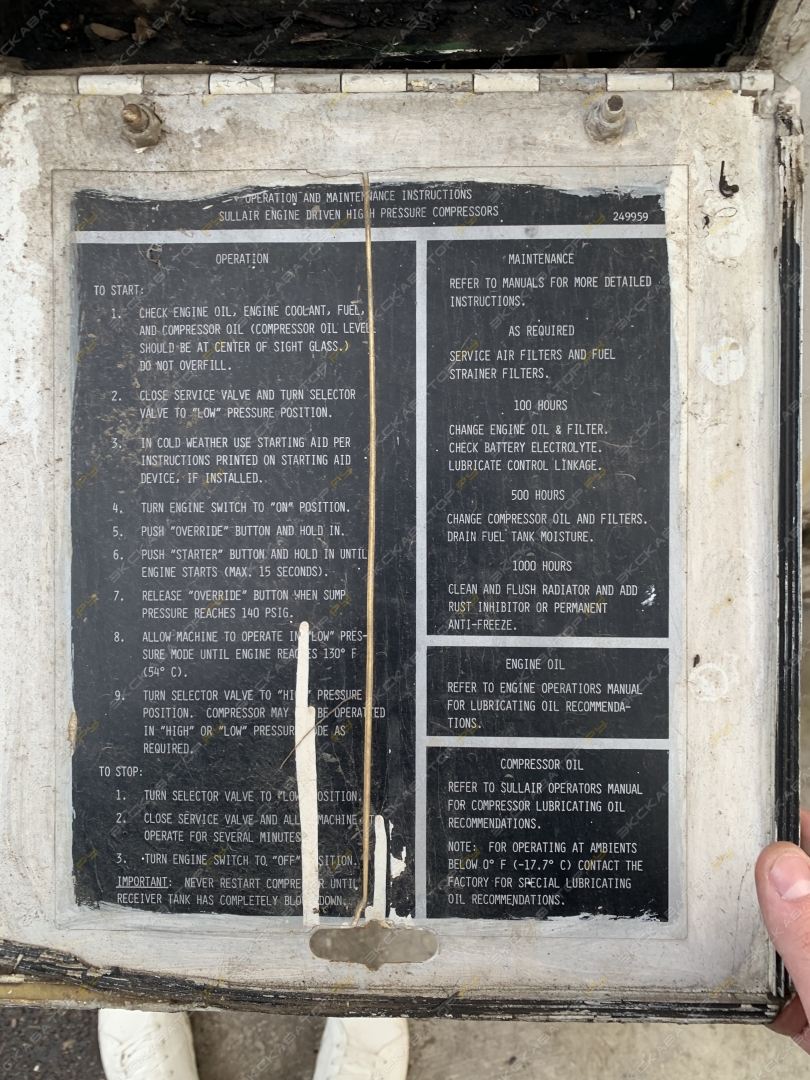 OPERATION AND MAINTENANCE INSTRUCTIONS
SULLAIR ENGINE DRIVEN HIGH PRESSURE COMPRESSORS
249959
OPERATION
TO START:
1. CHECK ENGINE OIL, ENGINE COOLANT, FUEL,
AND COMPRESSOR OIL (COMPRESSOR OIL LEVEL
SHOULD BE AT CENTER OF SIGHT GLASS.)
DO NOT OVERFILL.
2. CLOSE SERVICE VALVE AND TURN SELECTOR
VALVE TO "LOW" PRESSURE POSITION.
3. IN COLD WEATHER USE STARTING AID PER
INSTRUCTIONS PRINTED ON STARTING AID
DEVICE, IF INSTALLED.
4. TURN ENGINE SWITCH TO "ON" POSITION.
5. PUSH "OVERRIDE" BUTTON AND HOLD IN.
6. PUSH "STARTER" BUTTON AND HOLD IN UNTIL
ENGINE STARTS (MAX. 15 SECONDS).
7. RELEASE "OVERRIDE" BUTTON WHEN SUMP
PRESSURE REACHES 140 PSIG.
8. ALLOW MACHINE TO OPERATE IN "LOW" PRES-
SURE MODE UNTIL ENGINE REACHES 130° F
(54° C).
9. TURN SELECTOR VALVE TO "HIGH" PRESSURE
POSITION. COMPRESSOR MAY BE OPERATED
IN "HIGH" OR "LOW" PRESSURE MODE AS
REQUIRED.
TO STOP:
1. TURN SELECTOR VALVE TO "LOW" POSITION.
2. CLOSE SERVICE VALVE AND ALLOW MACHINE TO
OPERATE FOR SEVERAL MINUTES
3. TURN ENGINE SWITCH TO "OFF" POSITION.
IMPORTANT: NEVER RESTART COMPRESSOR UNTIL
RECEIVER TANK HAS COMPLETELY BLOWN DOWN.
MAINTENANCE
REFER TO MANUALS FOR MORE DETAILED
INSTRUCTIONS.
AS REQUIRED
SERVICE AIR FILTERS AND FUEL
STRAINER FILTERS.
100 HOURS
CHANGE ENGINE OIL & FILTER.
CHECK BATTERY ELECTROLYTE.
LUBRICATE CONTROL LINKAGE.
500 HOURS
CHANGE COMPRESSOR OIL AND FILTERS.
DRAIN FUEL TANK MOISTURE.
1000 HOURS
CLEAN AND FLUSH RADIATOR AND ADD
RUST INHIBITOR OR PERMANENT
ANTI-FREEZE.
ENGINE OIL
REFER TO ENGINE OPERATIORS MANUAL
FOR LUBRICATING OIL RECOMMENDA-
TIONS.
COMPRESSOR OIL
REFER TO SULLAIR OPERATORS MANUAL
FOR COMPRESSOR LUBRICATING OIL
RECOMMENDATIONS.
NOTE: FOR OPERATING AT AMBIENTS
BELOW 0° F (-17.7° C) CONTACT THE
FACTORY FOR SPECIAL LUBRICATING
OIL RECOMMENDATIONS.